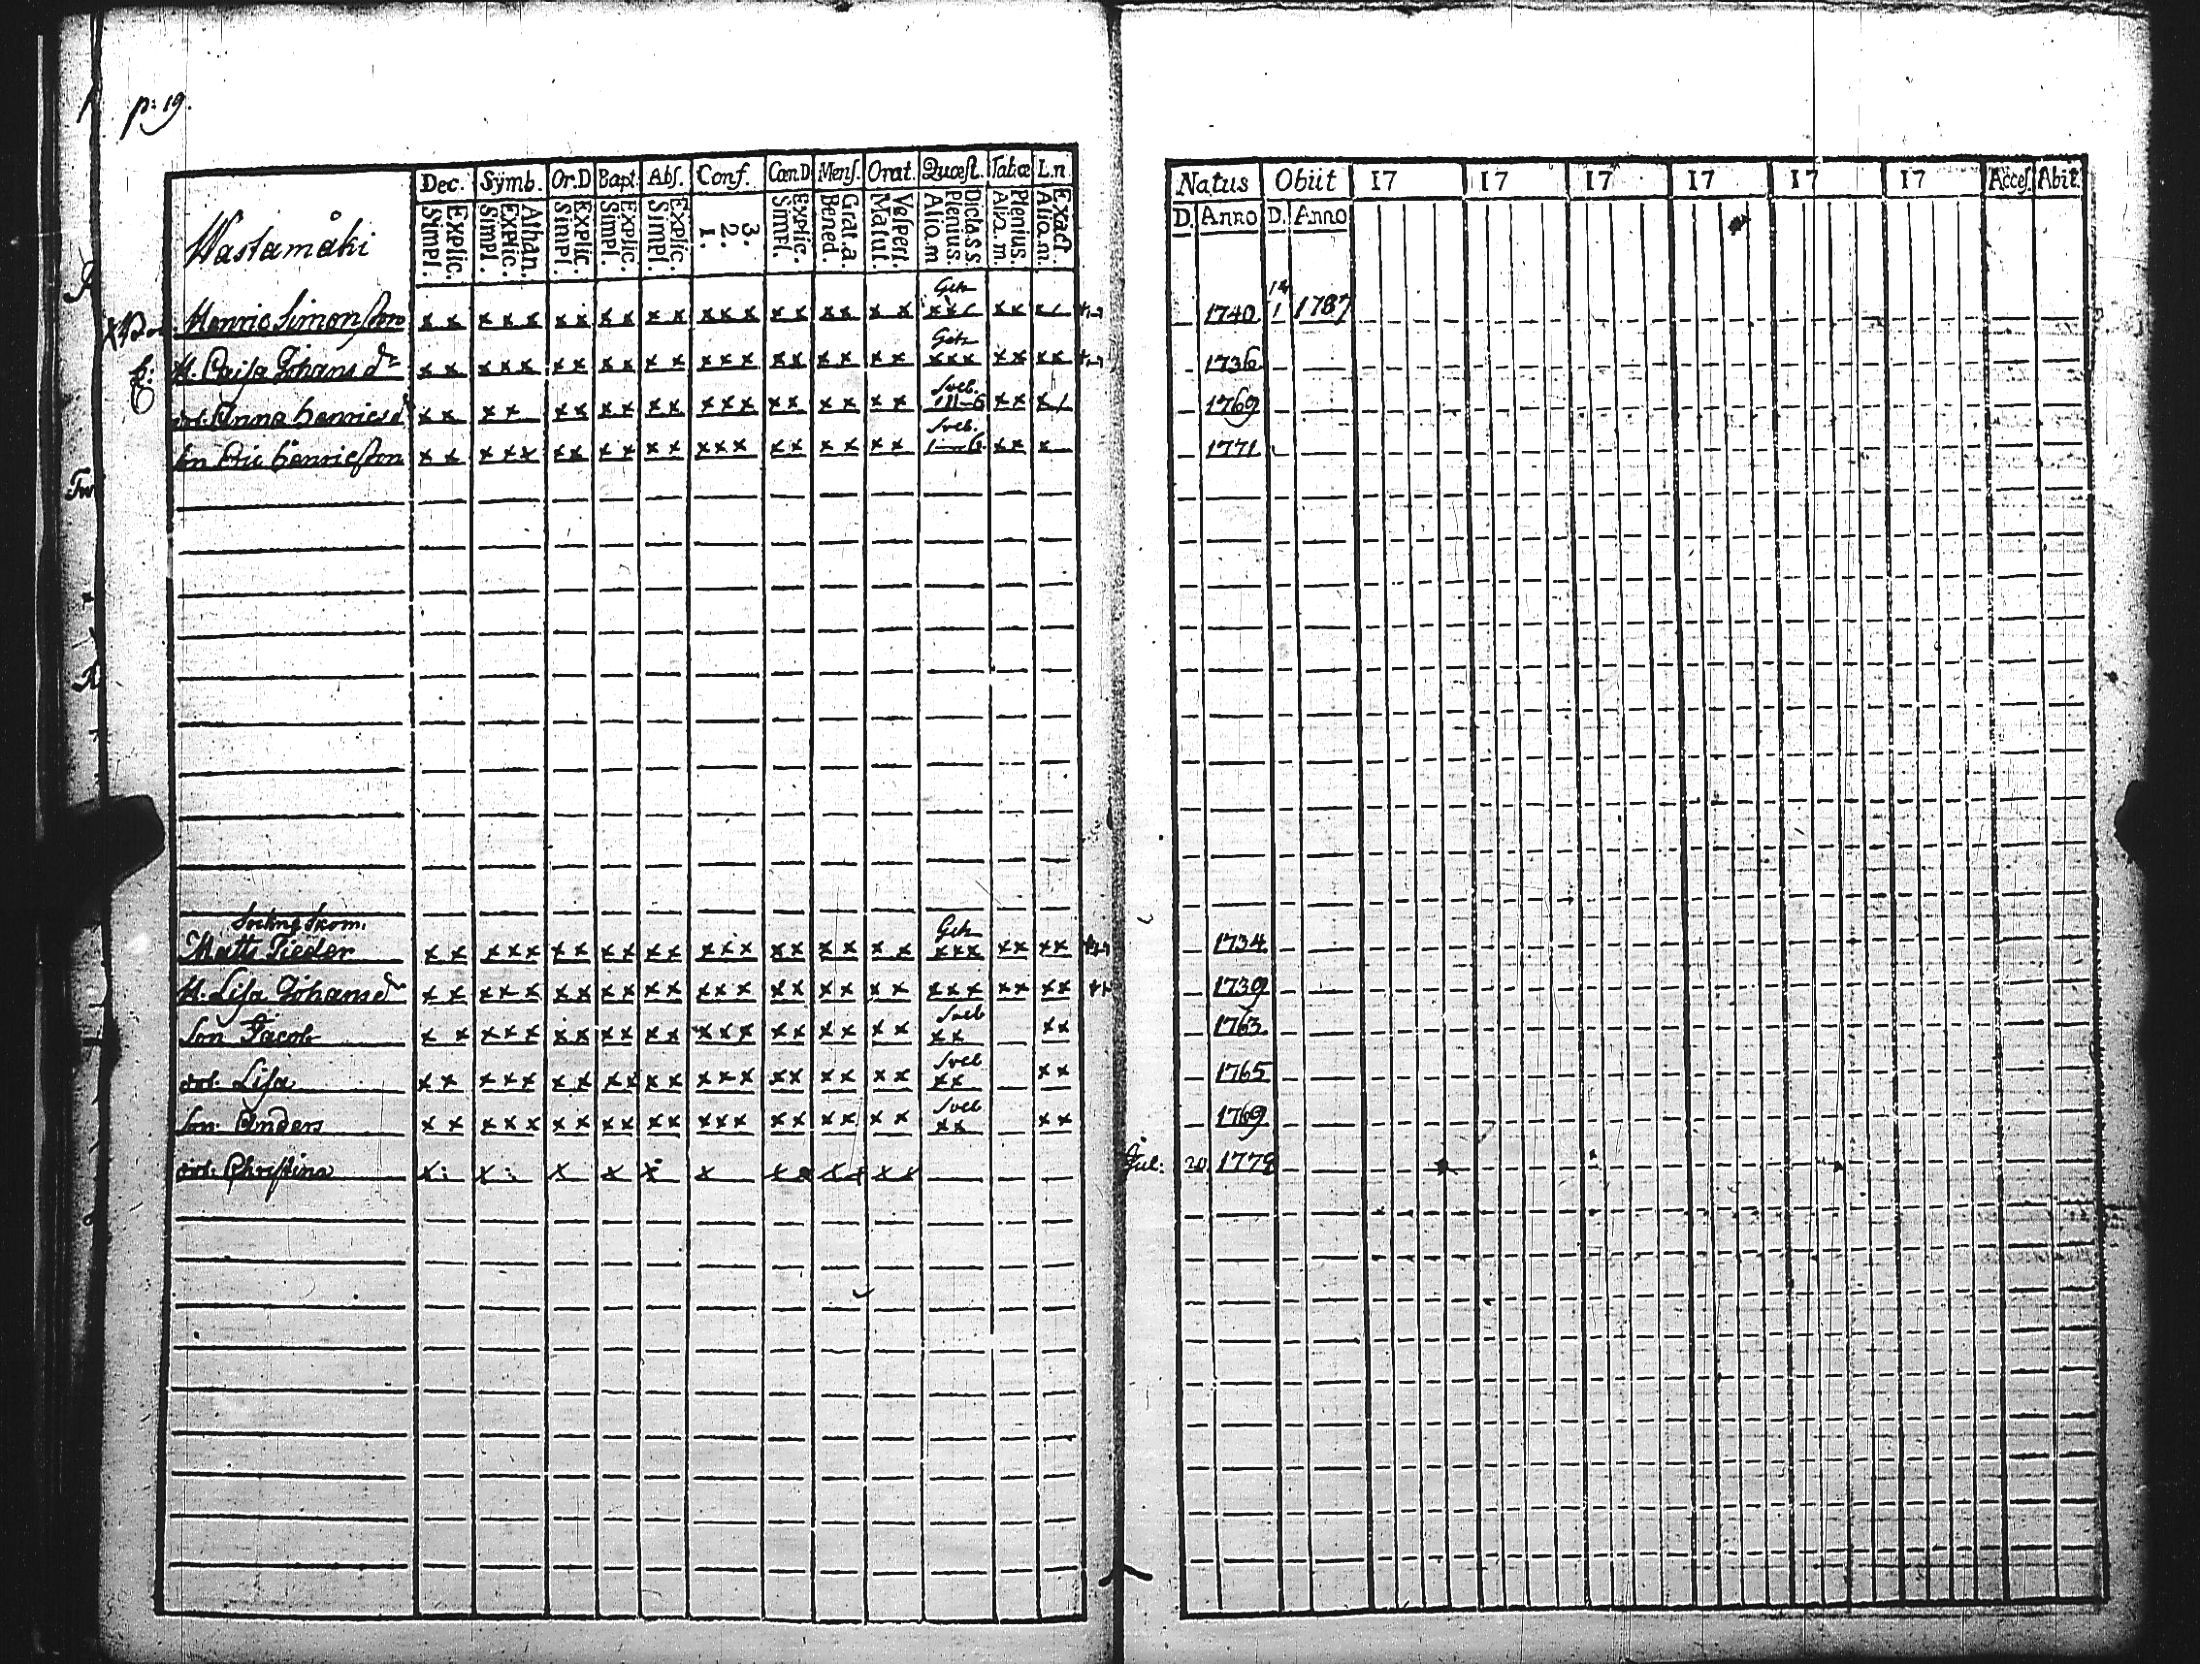 p: 19.
Dec. Symb. Or.D Bapt. Abſ. Conf. Cœn.D Menſ. Orat. Quæſt. Tab.æ L.n
Explic. Simpl. Athan. Explic. Simpl. Explic. Simpl. Explic. Simpl. Explic. Simpl. 3. 2. 1. Explic. Simpl. Grat.a. Bened. Veſpert. Matut. Dicta.s.s. Plenius. Aliq.m Plenius. Aliq.m. Exact. Aliq.m.
Natus Obiit 17 17 17 17 17 17 Acceſ. Abiit.
D. Anno D. Anno
Wastamåki
Henric Simonſson x x x x x x x x x x x x x x x x x x x x x Geh x x x x 1740 1787
H. Caiſa Johans dr x x x x x x x x x x x x x x x x x x x x x Geh x x x x x x x 1736
dot. Anna Henrics d x x x x x x x x x x x x x x x x x x x x Sveb. x x 1769
son Eric Henricſson x x x x x x x x x x x x x x x x x x x x x Sveb. 1–6 x x x 1771
Matts Fieder x x x x x x x x x x x x x x x x x x x x x Geh x x x x x x x 1734
H. Liſa Johans d x x x x x x x x x x x x x x x x x x x x x x x x x x x x 1739
Son Jacob x x x x x x x x x x x x x x x x x x x x x Sveb x x x x 1763
dot. Liſa x x x x x x x x x x x x x x x x x x x x x Sveb x x x x 1765
Son. Anders x x x x x x x x x x x x x x x x x x x x x Sveb x x x x 1769
dot: Chriſtina x: x: x x x x x x x x x x Jul: 20. 1778